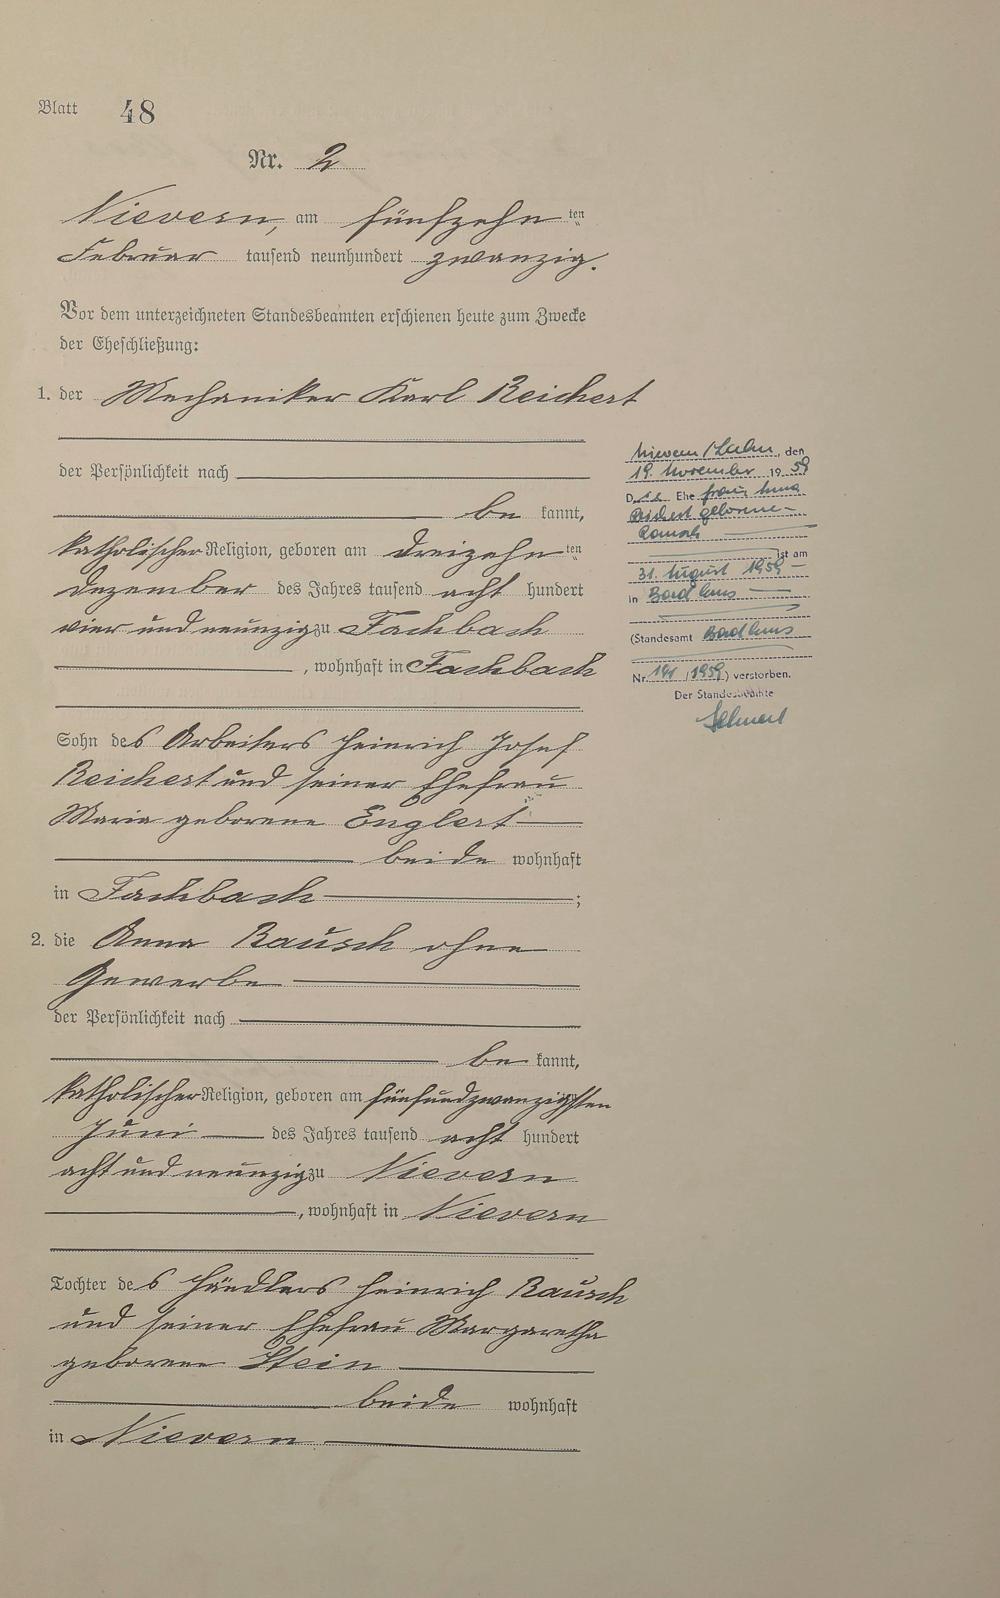 Blatt 48
Nr. 2
Nievern, am fünfzehnten
Februar tausend neunhundert zwanzig.
Vor dem unterzeichneten Standesbeamten erschienen heute zum Zwecke
der Eheschließung:
1. der Mechaniker Karl Reichert
der Persönlichkeit nach
be kannt,
katholischer Religion, geboren am dreizehn ten
Dezember des Jahres tausend acht hundert
vier und neunzig zu Fachbach
, wohnhaft in Fachbach
Sohn des Arbeiters Heinrich Josef
Reichert und seiner Ehefrau
Maria geborene Englert
beide wohnhaft
in Fachbach ;
2. die Anna Rausch ohne
Gewerbe
der Persönlichkeit nach
be kannt,
katholischer Religion, geboren am fünfundzwanzigsten
Juni des Jahres tausend acht hundert
acht und neunzig zu Nievern
, wohnhaft in Nievern
Tochter des Händlers Heinrich Rausch
und seiner Ehefrau Margaretha
geborene Stein
beide wohnhaft
in Nievern
Nievern/Lahn, den
19. November 1959
Die Ehefrau Anna
Reichert geborene
Rausch
ist am
31. August 1959
in Bad Ems
(Standesamt Bad Ems
Nr. 141/1959) verstorben.
Der Standesbeamte